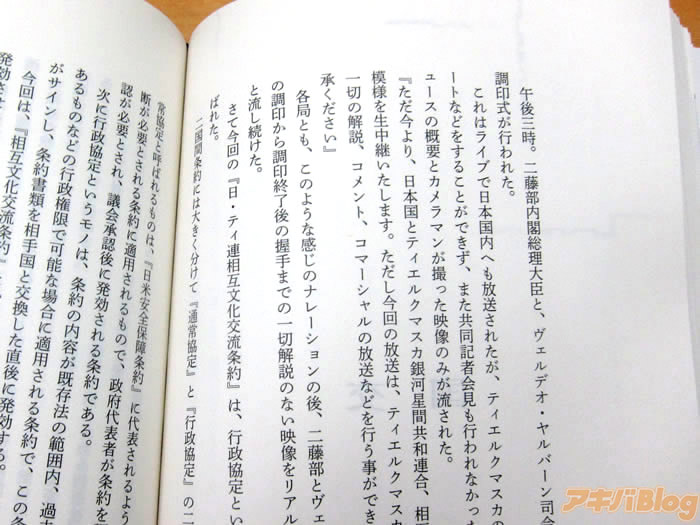 午後三時。二藤部内閣総理大臣と、ヴェルデオ・ヤルバーン司会
調印式が行われた。
これはライブで日本国内へも放送されたが、ティエルクマスカの
ートなどをすることができず、また共同記者会見も行われなかった
ュースの概要とカメラマンが撮った映像のみが流された。
『ただ今より、日本国とティエルクマスカ銀河星間共和連合、相互
模様を生中継いたします。ただし今回の放送は、ティエルクマスカ
一切の解説、コメント、コマーシャルの放送などを行う事ができ
承ください』
各局とも、このような感じのナレーションの後、二藤部とヴェ
の調印から調印終了後の握手までの一切解説のない映像をリアル
と流し続けた。
さて今回の『日・ティ連相互文化交流条約』は、行政協定という
ばれた。
二国間条約には大きく分けて『通常協定』と『行政協定』の二
常協定と呼ばれるものは、『日米安全保障条約』に代表されるよう
断が必要とされる条約に適用されるもので、政府代表者が条約を
認が必要とされ、議会承認後に発効される条約である。
次に行政協定というモノは、条約の内容が既存法の範囲内、過去
あるものなどの行政権限で可能な場合に適用される条約で、この条
がサインし、条約書類を相手国と交換した直後に発効する。
今回は、『相互文化交流条約』
発効させ
アキバBlog